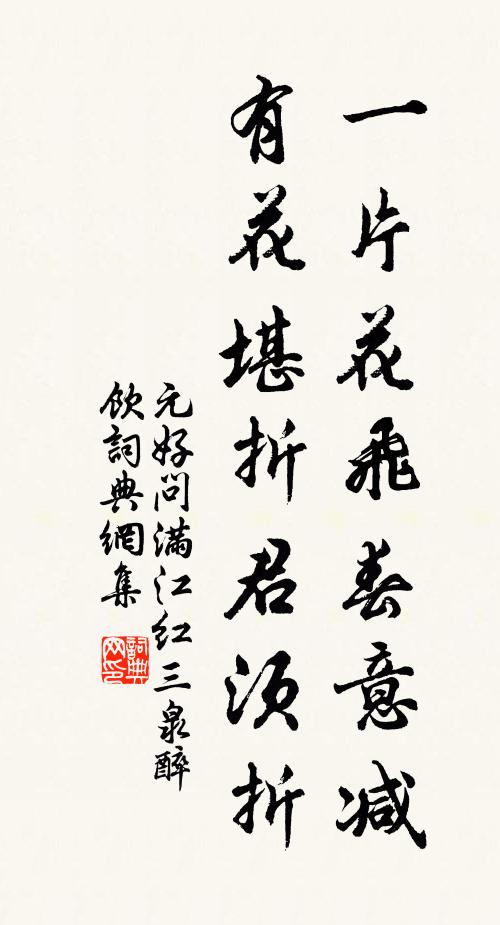 一片花飛春意減
有花堪折君須折
元好問滿江紅三泉醉
飲詞典網集
詞典
网印